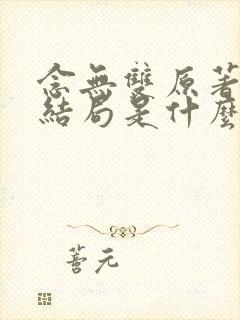 念無雙原著
結局是什麼
善元